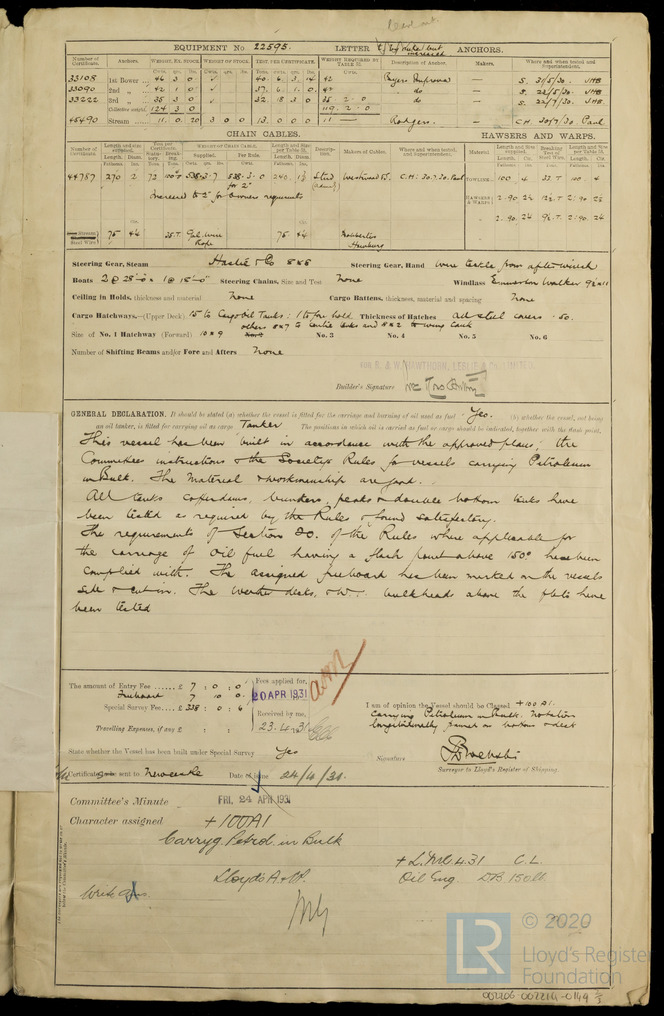 EQUIPMENT No 22595. LETTER ANCHORS.
Number of Certificate. Anchors. WEIGHT, EX. STOCK. WEIGHT OF STOCK. TEST, PER CERTIFICATE. WEIGHT REQUIRED BY TABLE 22. Description of Anchor. Makers. Where and when tested and Superintendent.
33108 1st Bower 46 3 0 40 6 3 14 42 Byers Improved — S. 31/5/30. JHB
33090 2nd „ 42 1 0 37 6 1 0 42 do — S. 22/5/30. JHB
33222 3rd „ 35 3 0 32 18 3 0 35 2 0 do — S. 22/7/30. JHB
Collective weight 124 3 0 119 2 0
45490 Stream 11 0 20 3 0 0 13 0 0 0 11 — Rodgers. — CH. 30/7/30. Paul
CHAIN CABLES. HAWSERS AND WARPS.
Number of Certificate Length and size supplied. Test per Certificate. WEIGHT OF CHAIN CABLE. Length and size per Table 22. Description. Makers of Cables. Where and when tested, and Superintendent. Material. Length and Size supplied. Breaking Test of Steel Wire. Length and Size per Table 22.
Length. Diam. Supplied. Per Rule. Length. Diam.
44787 270 2 72 538.3.7 538.3.0 240 Stud C.H. 30.7.30. Paul TOWLINE 100 4 33 T 100 4
for 2"
Increased to 2" for Owners requirements
HAWSERS & WARPS 2.90 2½
2.90 2¼ 2.90 2¼
Stream Steel Wire 75 4¼ 35.T. Gal. Wire Rope 75 4¼
Steering Gear, Steam Hastie & Co 8x8 Steering Gear, Hand Wire tackle from after winch
Boats 2 @ 28'-0" 1 @ 18'-0" Steering Chains, Size and Test None Windlass Emerson Walker 9½x11
Ceiling in Holds, thickness and material None Cargo Battens, thickness, material and spacing None
Cargo Hatchways.—(Upper Deck) 15 to Cargo Oil Tanks: 1 to fore hold Thickness of Hatches All steel covers .50.
others 8x7 to centre tanks and 8x2 to wing tanks
Size of No. 1 Hatchway (Forward) 10 x 9 No. 3 No. 4 No. 5 No. 6
Number of Shifting Beams and/or Fore and Afters None
Builder's Signature
GENERAL DECLARATION. It should be stated (a) whether the vessel is fitted for the carriage and burning of oil used as fuel Yes. (b) whether the vessel, not being
an oil tanker, is fitted for carrying oil as cargo Tanker The positions in which oil is carried as fuel or cargo should be indicated, together with the flash point.
This vessel has been built in accordance with the approved plans, the
Committees instructions & the Society's Rules for vessels carrying Petroleum
in Bulk. The Material & workmanship are good.
All tanks cofferdams, bunkers, peaks & double bottom tanks have
been tested as required by the Rules & found satisfactory.
The requirements of Section 20. of the Rules where applicable for
the carriage of Oil fuel having a flash point above 150° have been
complied with. The assigned freeboard has been marked on the vessels
side & cut in. The Weather decks, & W.T. bulkheads above the flats have
been tested
The amount of Entry Fee £ 7 : 0 : 0
Freeboard 7 10 0
Special Survey Fee £ 338 : 0 : 6
Travelling Expenses, if any £ : :
Fees applied for,
20 APR 1931
Received by me,
23.4.31
I am of opinion the Vessel should be Classed +100 A1.
Carrying Petroleum in Bulk. Notation
longitudinally framed on bottom & deck
State whether the Vessel has been built under Special Survey Yes
Signature
Surveyor to Lloyd's Register of Shipping.
Certificate to be sent to Newcastle Date of issue 24/4/31.
Committee's Minute FRI. 24 APR 1931
Character assigned +100A1
Carryg. Petrol. in Bulk
+ L.M.C. 4.31 C.L.
Lloyd's A. & C.P.
Oil Eng.
© 2020
LR
Lloyd's Register
Foundation
002206-002214-0149